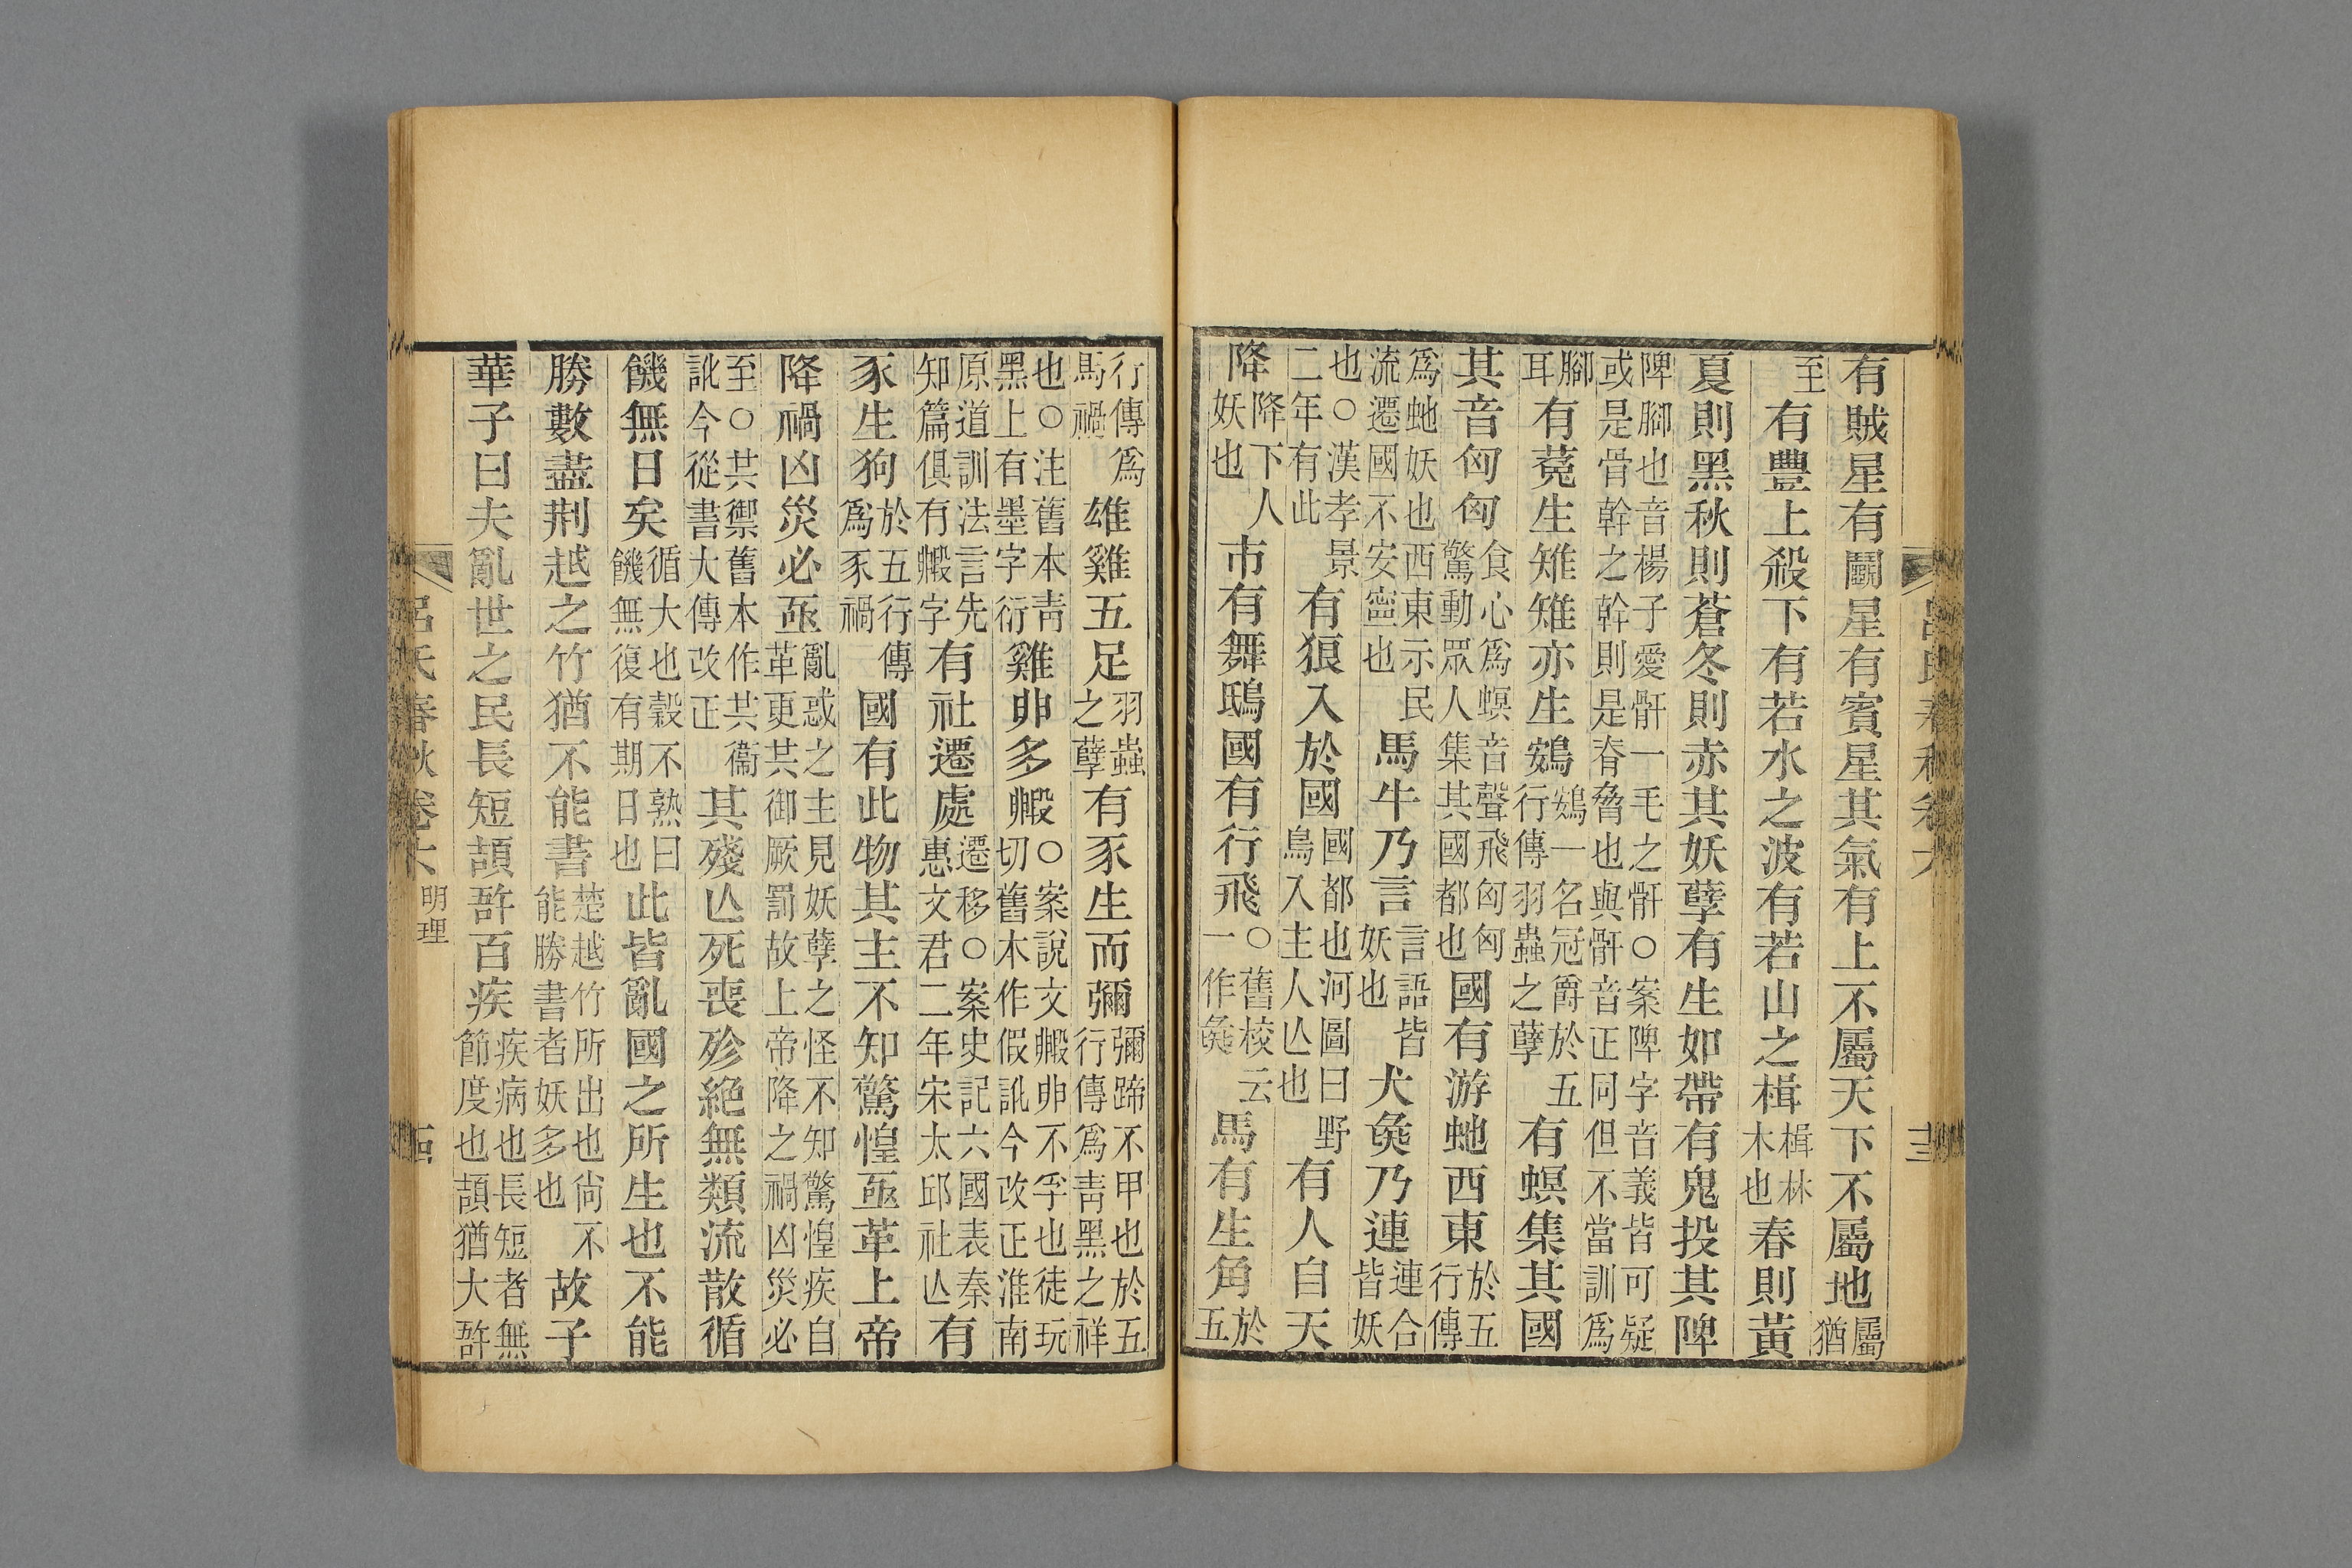 有賊星有鬭星有賓星其氣有上不屬天下不屬地屬猶
至有豐上殺下有若水之波有若山之楫楫林木也春則黃
夏則黑秋則蒼冬則赤其妖孽有生如帶有鬼投其陴
陴腳也音楊子愛骭一毛之骭○案陴字音義皆可疑或是骨幹之幹則是脊脅也與骭音正同但不當訓爲
腳耳有菟生雉雉亦生鴳鴳一名冠爵於五行傳羽蟲之孽有螟集其國
其音匈匈食心爲螟音聲飛匈匈驚動眾人集其國都也國有游虵西東於五行傳
爲虵妖也西東示民流遷國不安寧也馬牛乃言言語皆妖也犬彘乃連連合皆妖
也○漢孝景二年有此有狼入於國國都也河圖曰野鳥入主人亾也有人自天
降降下人妖也市有舞鴟國有行飛○舊校云一作彘馬有生角於五
行傳爲馬禍雄雞五足羽蟲之孽有豕生而彌彌蹄不甲也於五行傳爲青黑之祥
也○注舊本青黑上有墨字衍雞卵多毈○案說文毈卵不孚也徒玩切舊本作假訛今改正淮南
原道訓法言先知篇俱有毈字有社遷處遷移○案史記六國表秦惠文君二年宋太邱社亾有
豕生狗於五行傳爲豕禍國有此物其主不知驚惶亟革上帝
降禍凶災必亟亂惑之主見妖孽之怪不知驚惶疾自革更共御厥罰故上帝降之禍凶災必
至○共禦舊本作共衞訛今從書大傳改正其殘亾死喪殄絕無類流散循
饑無日矣循大也穀不熟曰饑無復有期日也此皆亂國之所生也不能
勝數盡荆越之竹猶不能書楚越竹所出也尙不能勝書者妖多也故子
華子曰夫亂世之民長短頡䛊百疾疾病也長短者無節度也頡猶大䛊
明理